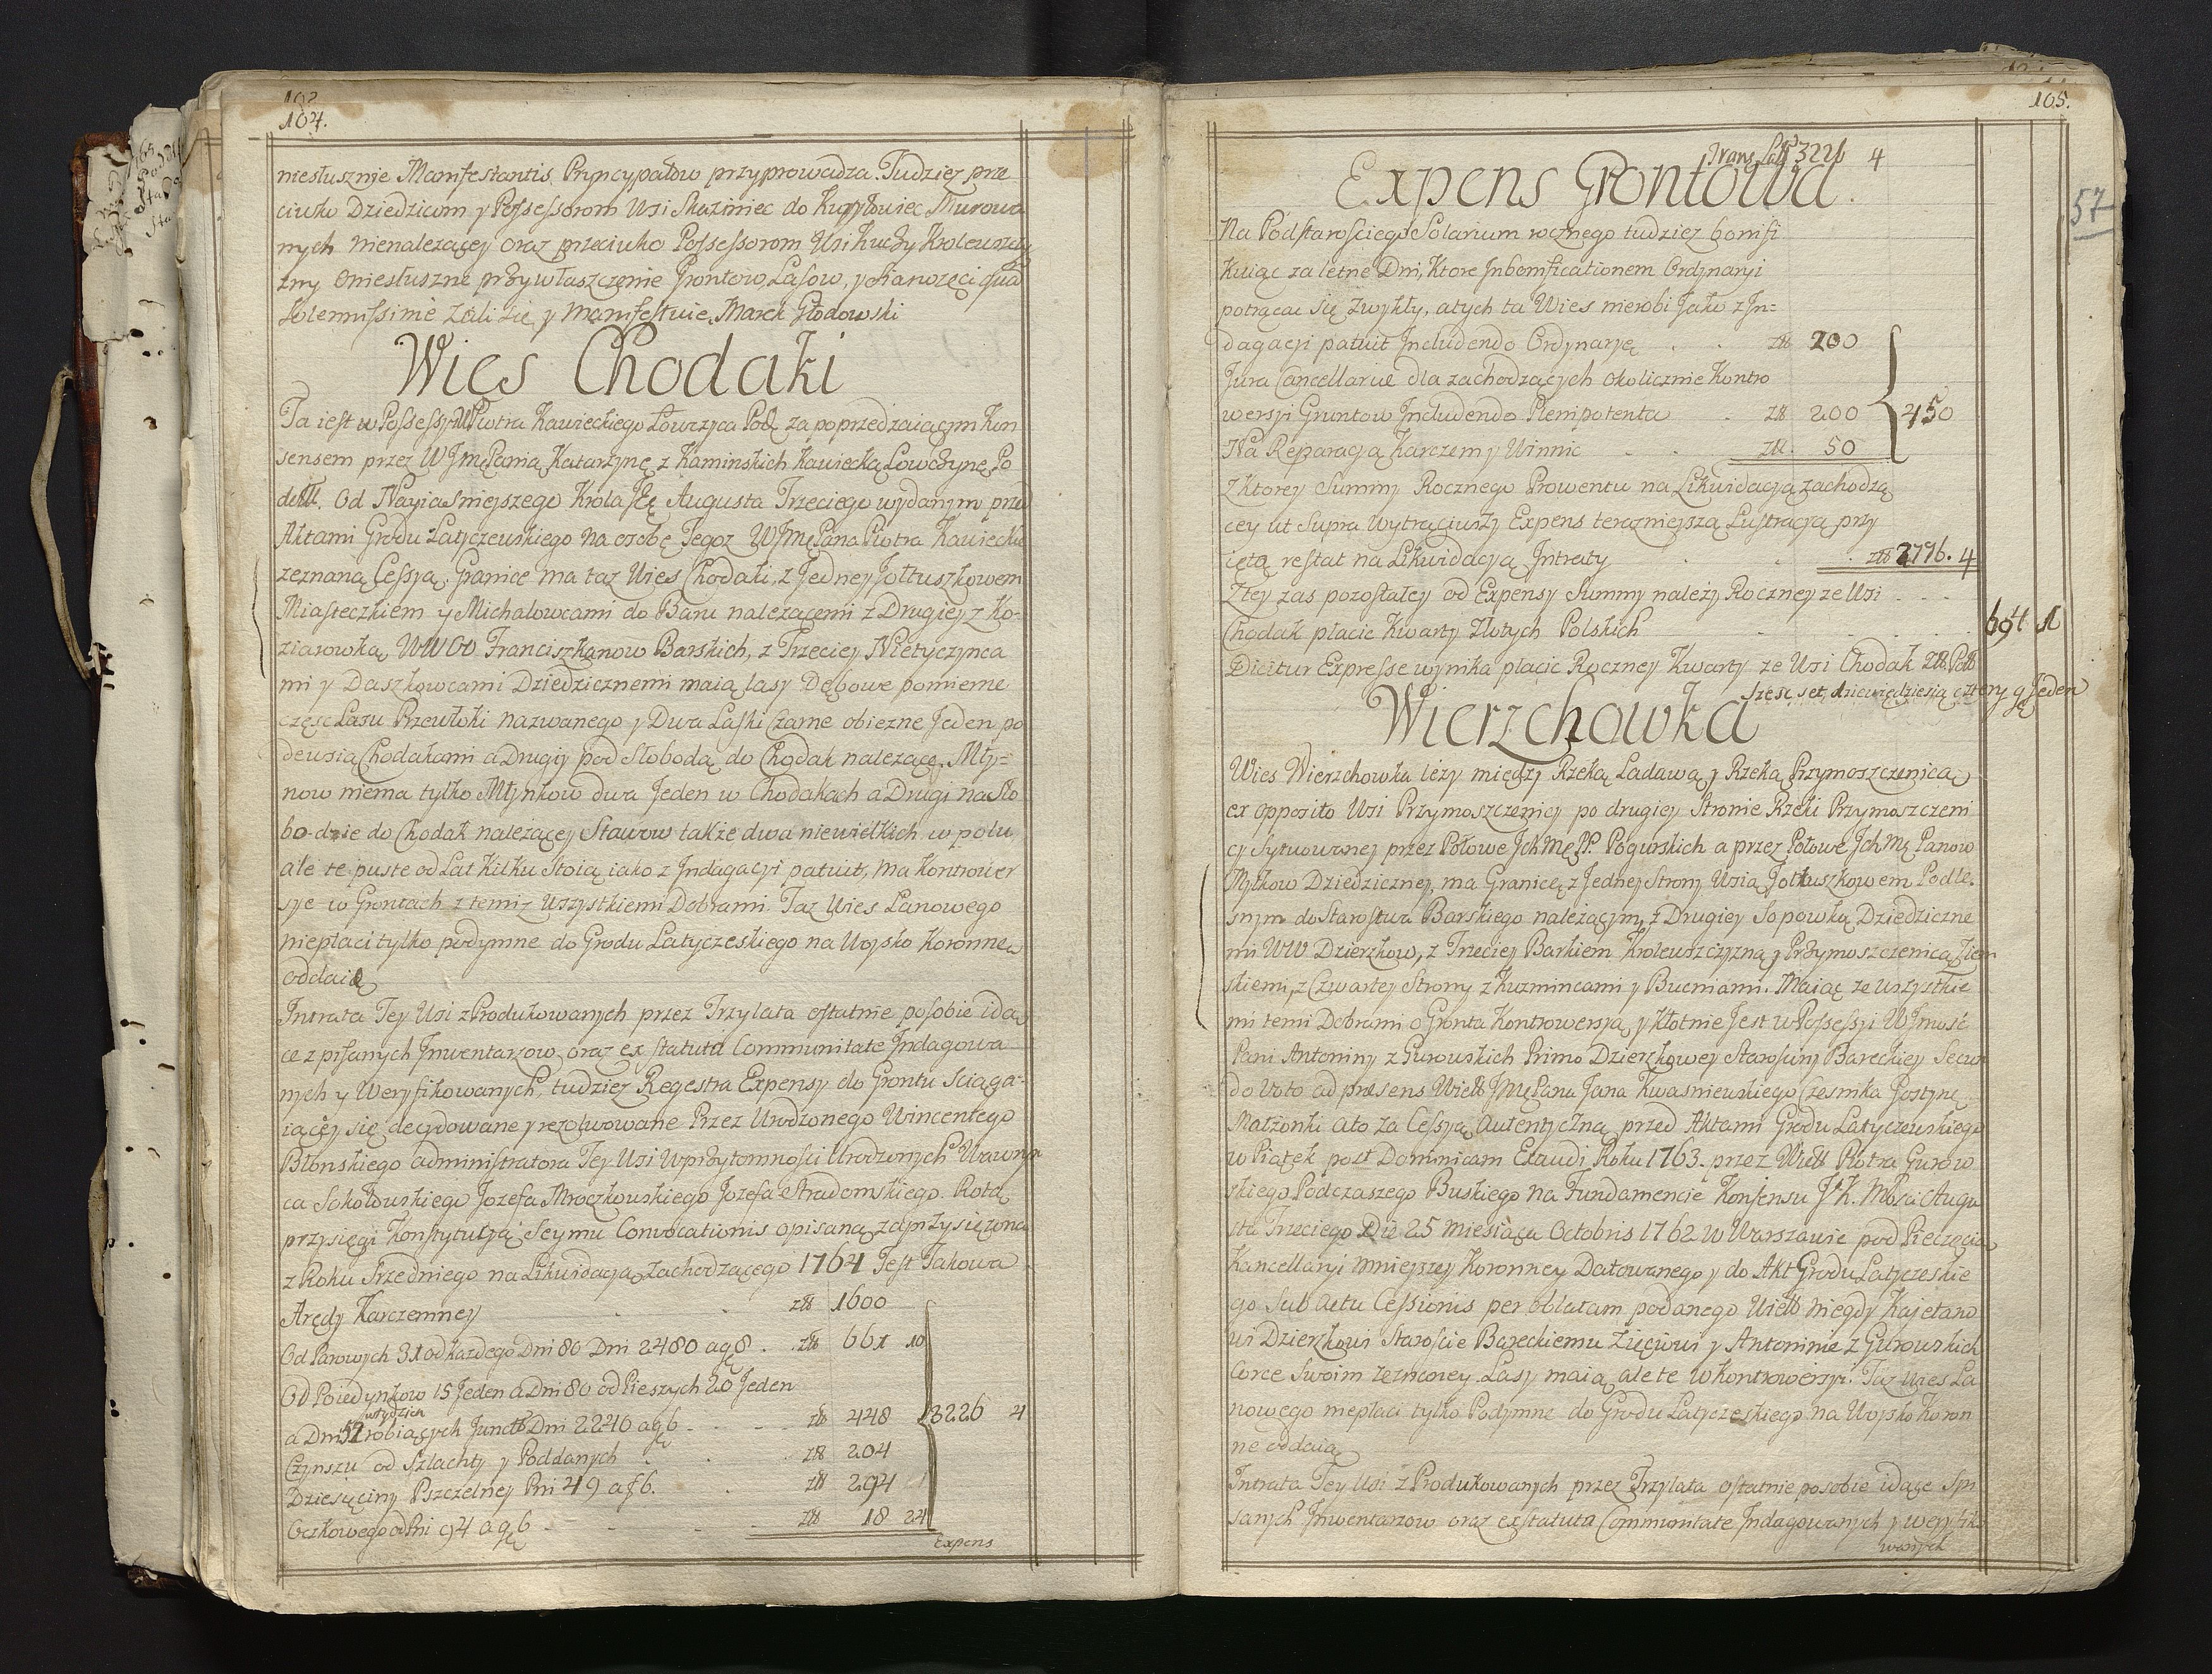 164.
niesłusznie Manifestantis Pryncypałow przyprowadza. Tudziez prze
ciwko Dziedzicom y Possessorom Wsi do Kupyłowiec Murowa
nych nienalezącey oraz przeciwko Possessorom Wsi Kuchy Krolewszczy
zny oniesłuszne przywłaszczenie Grontow, Lasow, y Sianozęci qua
solennissime zali się y Manifestuie. Marek Głodowski
Wies Chodaki
Ta iest w Possessyi W Piotra Kawieckiego Łowczyca Pod. za poprzedzaiącym Kon
sensem przez WJmę Panią Katarzynę z Kaminskich Kawiecką Łowczynę Po
dolll. Od Nayiasnieyszego Krola JEę Augusta Trzeciego wydanym przed
Aktami Grodu Latyczewskiego na osobę Tegoz WJmę Pana Piotra Kawieckie
zeznaną Cessyą. Granice ma taz Wies Chodaki, z Jedney Jołtuszkowem
Miasteczkiem y Michałowcami do Baru nalezącemi z Drugiey z Ko-
ziarowką WWOO Franciszkanow Barskich, z Trzeciey Nietyczynca
mi y Daszkowcami Dziedzicznemi maią lasy Dębowe pomierne
częsc Lasu Przewłoki nazwanego y Dwa Laski Czarne obiezne Jeden po
dewsią Chodakami a Drugi pod Słobodą do Chodak nalezące. Mły=
now niema tylko Młynkow dwa Jeden w Chodakach a Drugi na Sło
bo-dzie do Chodak nalezącey Stawow takze dwa niewielkich w polu
ale te puste od Lat Kilku stoią iako z Indagacyi patuit, ma Kontrower
sye w Grontach z temiz wszystkiemi Dobrami. Taz Wies Łanowego
niepłaci tylko podymne do Grodu Latyczeskiego na Woysko Koronne
oddaią
Intrata Tey Wsi z Produkowanych przez Trzylata ostatnie posobie idą
ce zpisanych Inwentarzow oraz ex statuta Communitate Indagowa
nych y Weryfikowanych, tudziez Regestra Expensy do Grontu sciąga-
iącey się decydowane y rezolwowane Przez Urodzonego Wincentego
Błonskiego administratora Tey Wsi wprzytomnosci Urodzonych Wawrzyn
ca Sokołowskiego Jozefa Mroczkowskiego Jozefa Stradomskiego. Rotą
przysięgi Konstytucyą Seymu Convocationis opisaną zaprzysięzona
z Roku Srzedniego na Likwidacyą zachodzącego 1764 Jest Takowa
Arędy Karczemney złł 1600
Od Parowych 31 od kazdego Dni 80 Dni 2480 a gę 8. złł 661 10
Od Poiedynkow 15 Jeden a Dni 80 od Pieszych 20 Jeden
wtydzien
a Dni 52 robiących Junctt Dni 2240 a gę 6 złł 448 3226 4
Czynszu od Szlachty y Poddanych złł 204
Dziesięciny Pszczelney Pni 49 a gę 6. złł 294
Oczkowego od Pni 94 a gę 6 złł 18 24
Expens
165.
57
Trans Lat 3226 4
Expens Grontowa.
Na Podstarosciego Solarium rocznego tudziez bonifi
kuiąc za letne Dni, Ktore Inbonificationem Ordynaryi
potrącac się zwykły, a tych ta Wies nierobi Jako z In=
dagacyi patuit Includendo Ordynaryę złł 200
Jura Cancellariae dla zachodzących okolicznie Kontro
wersyi Gruntow Includendo Plenipotenta złł 200 450
Na Reparacyą Karczem y Winnic złł. 50
Z Ktorey Summy Rocznego Prowentu na Likwidacyą zachodzą
cey ut Supra wytrąciwszy Expens teraznieyszą Lustracyą przy
iętą restat na Likwidacyą Intraty złł 2776. 4
Z tey zas pozostałey od Expensy Summy nalezy Roczney ze Wsi
Chodak płacic Kwarty Złotych Polskich 694 1
Dicitur Expresse wynika płacic Roczney Kwarty ze Wsi Chodak złł. Poll
szesc set dziewiędziesią cztery g Jeden
Wierzchowka
Wies Wierzchowka lezy między Rzeką Ladawą y Rzeką Przymoszczenicą
ex opposito Wsi Przymoszczenicy po drugiey Stronie Rzeki Przymoszczeni
cy sytuowaney przez Połowe Jch Mę PP. Pogurskich a przez Połowe Jch Mę Panow
Mytkow Dziedziczney, ma Granice z Jedney Strony Wsią Jołtuszkowem Podle-
snym do Starostwa Barskiego nalezącym, z Drugiey Sopowką Dziedziczne
mi WW Dzierzkow, z Trzeciey Barkiem Krolewszczyzną y Przymoszczenicą Ziem
skiemi, z Czwartey Strony z Kuzmincami y Bucniami. Maiąc ze wszystkie
mi temi Dobrami o Gronta Kontrowersyą y Kłotnie Jest w Possessyi WJmosc
Pani Antoniny z Gurowskich Primo Dzierzkowey Starosciny Bareckiey Secun
do Voto ad praesens Wiell JmęPana Jana Kwasniewskiego Czesnika Gostyn
Małzonki a to za Cessyą autentyczną przed Aktami Grodu Latyczewskiego
w Piątek post Dominicam Exaudi Roku 1763. przez Wiell Piotra Gurow
skiego Podczaszego Buskiego na Fundamencie Konsensu J K. Mosci Augu
sta Trzeciego Die 25 miesiąca Octobris 1762 w Warszawie pod Pieczęcią
Kancellaryi mnieyszey Koronney Datowanego y do Akt Grodu Latyczeskie
go sub actu Cessionis per oblatam podanego Wiell niegdy Kajetano
wi Dzierzkowi Staroscie Bareckiemu Zięciowi y Antoninie z Gurowskich
Corce Swoim zeznoney. Lasy maią ale te w Kontrowersyi. Taz Wies Ła
nowego niepłaci tylko Podymne do Grodu Latyczeskiego na Woysko Koron
ne oddaią
Intrata Tey Wsi z Produkowanych przez Trzylata ostatnie posobie idące Spi
sanych Inwentarzow oraz exstatuta Communitate Indagowanych y weryfiko
wanych